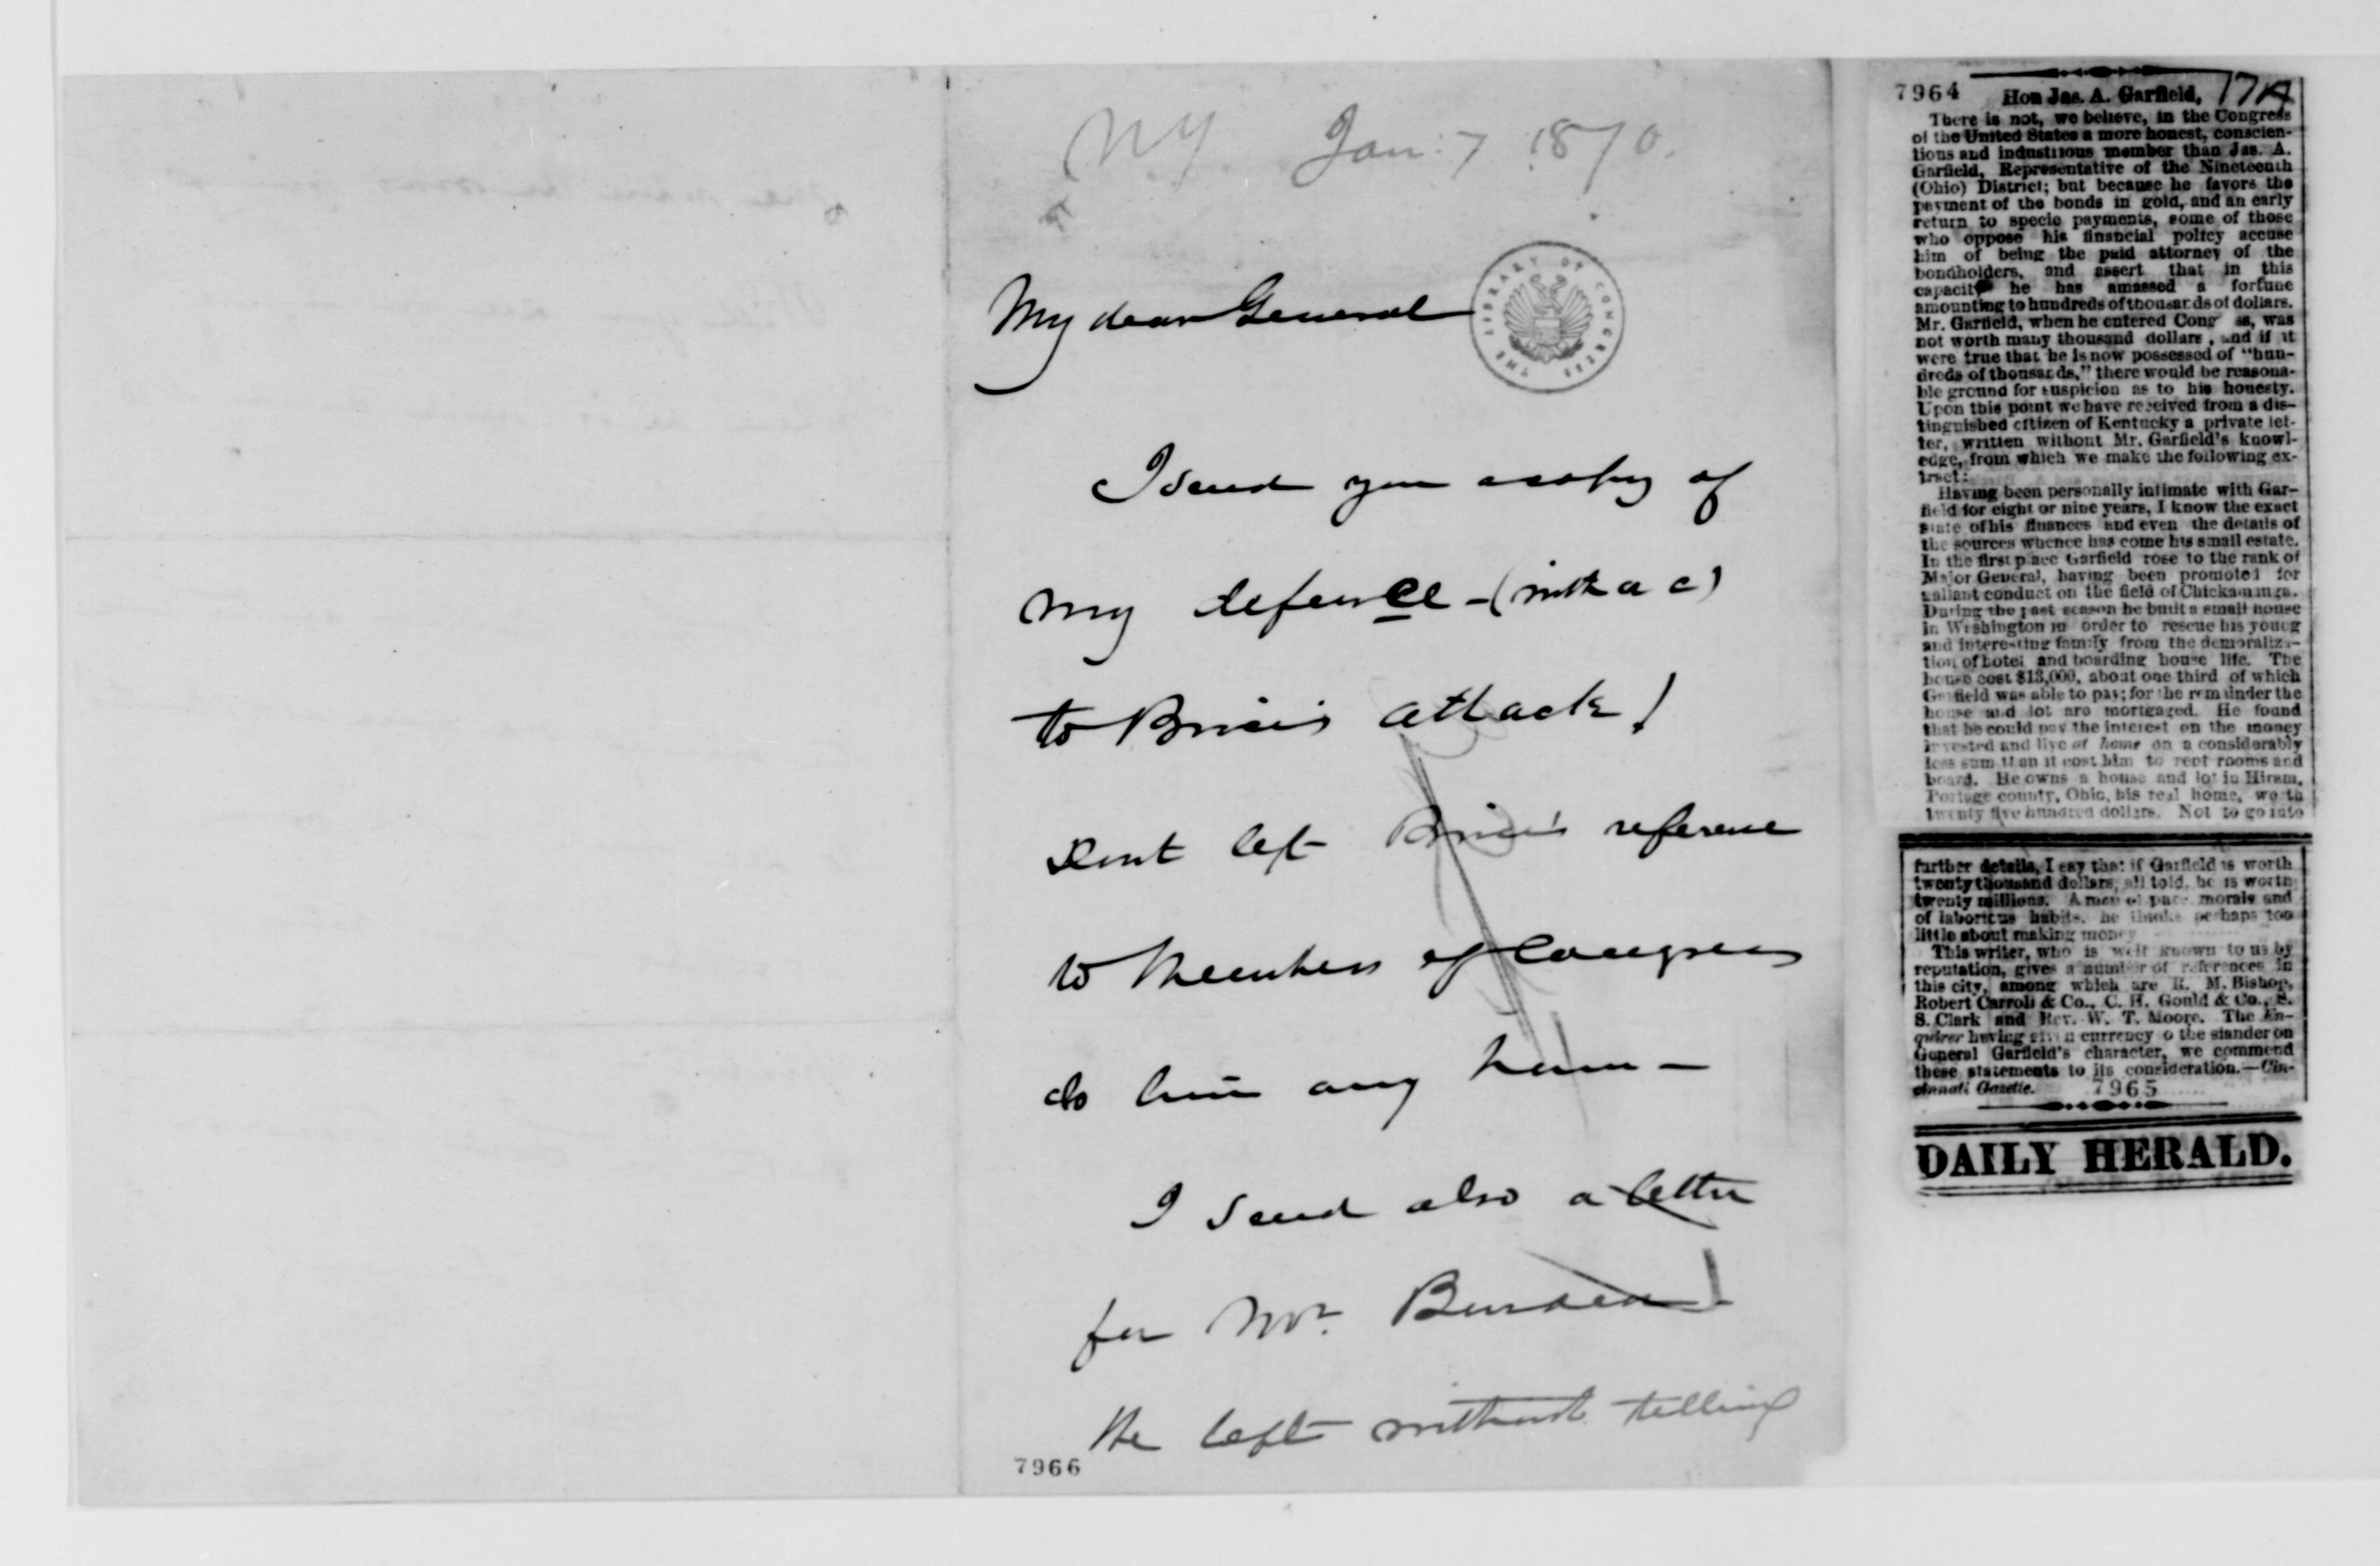 NY Jan: 7 1870.
My dear General
THE LIBRARY OF CONGRESS
I send you a copy of
my defence – (with a c)
to Brice's attack!
Dont left Brice's reference
to Members of Congress
do him any harm –
I send also a letter
for Mr.
He left without telling
7966
7964
1714
Hon Jas. A. Garfield,
There is not, we believe, in the Congress
of the United States a more honest, conscien-
tious and industrious member than Jas. A.
Garfield, Representative of the Nineteenth
(Ohio) District; but because he favors the
payment of the bonds in gold, and an early
return to specie payments, some of those
who oppose his financial policy accuse
him of being the paid attorney of the
bondholders, and assert that in this
capacity he has amassed a fortune
amounting to hundreds of thousands of dollars.
Mr. Garfield, when he entered Cong ss, was
not worth many thousand dollars, and if it
were true that he is now possessed of "hun-
dreds of thousands," there would be reasona-
ble ground for suspicion as to his honesty.
Upon this point we have received from a dis-
tinguished citizen of Kentucky a private let-
ter, written without Mr. Garfield's knowl-
edge, from which we make the following ex-
tract:
Having been personally intimate with Gar-
field for eight or nine years, I know the exact
state of his finances and even the details of
the sources whence has come his small estate.
In the first place Garfield rose to the rank of
Major General, having been promoted for
gallant conduct on the field of Chickamauga.
During the past season he built a small house
in Washington in order to rescue his young
and interesting family from the demoraliza-
tion of hotel and boarding house life. The
house cost $13,000, about one third of which
Garfield was able to pay; for the remainder the
house and lot are mortgaged. He found
that he could pay the interest on the money
invested and live at home on a considerably
less sum than it cost him to rent rooms and
board. He owns a house and lot in Hiram,
Portage county, Ohio, his real home, worth
twenty five hundred dollars. Not to go into
further details, I say that if Garfield is worth
twenty thousand dollars, all told, he is worth
twenty millions. A man of pure morals and
of laborious habits, he thinks perhaps too
little about making money
This writer, who is well known to us by
reputation, gives a number of references in
this city, among which are R. M. Bishop,
Robert Carroll & Co., C. H. Gould & Co., S.
S. Clark and Rev. W. T. Moore. The En-
quirer having given currency o the slander on
General Garfield's character, we commend
these statements to its consideration.—Cin-
cinnati Gazette.
7965
DAILY HERALD.